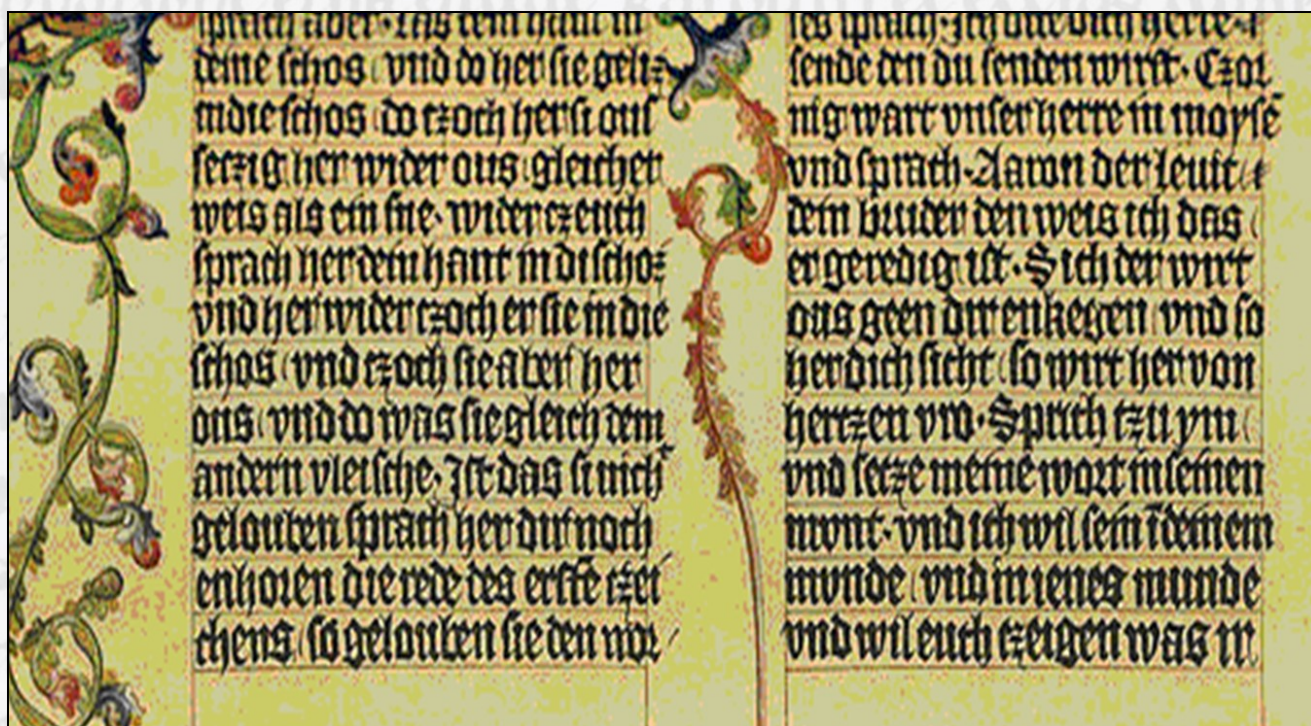 sprach aber· Las dein hant in
deine schos / vnd do her sie geliz
in die schos / do czoch her si ous
setzig / her wider ous / gleicher
weis als ein sne· wider czeuch
sprach her dein hant in di schoz
vnd her wider czoch er sie in die
schos / vnd czoch sie aber her
ous / vnd do was sie gleich dem
andern vleische· Ist das si nich
gelouben sprach her dir noch
enhoren die rede des erste czei
chens / so gelouben sie den nor
sprach· Ich bite dich herre·
sende den du senden wirst· Czor
nig wart vnser herre in moysē
vnd sprach· Aaron der leuit /
dein bruder den weis ich das /
er geredig ist· Sich der wirt
ous geen dir enkegen / vnd so
her dich sicht / so wirt her von
hertzen vro· Sprich tzu ym /
vnd setze meine wort in seinen
munt· vnd ich wil sein ī deinem
munde / vnd in ienes munde
vnd wil euch tzeigen was ir